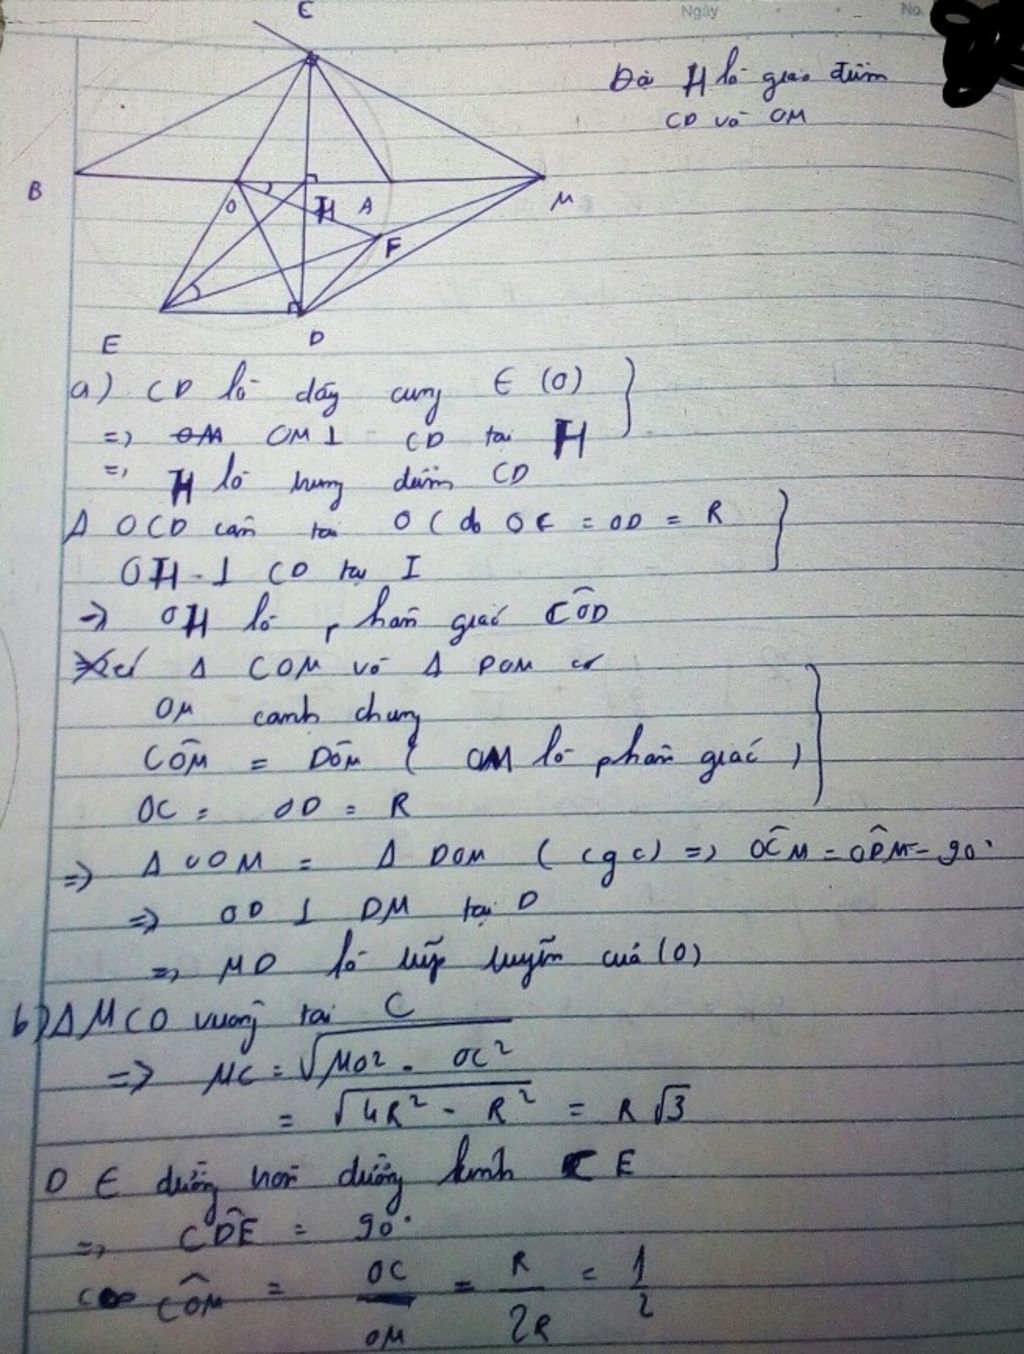 Ngày No.
C
Đặt H là giao điểm
CD và OM
B O H A M
F
E D
a) CD là dây cung ∈ (O)
=> OM ⊥ CD tại H
=> H là trung điểm CD
Δ OCD cân tại O (do OC = OD = R
OH ⊥ CD tại I
=> OH là phân giác CÔD
Xét Δ COM và Δ DOM có
OM cạnh chung
CÔM = DÔM ( OM là phân giác )
OC = OD = R
=> Δ COM = Δ DOM ( cgc) => OĈM = OD̂M = 90°
=> OD ⊥ DM tại D
=> MD là tiếp tuyến của (O)
b) Δ MCO vuông tại C
=> MC = √MO² - OC²
= √4R² - R² = R √3
D ∈ đường tròn đường kính CE
=> CD̂E = 90°
cos CÔM = OC/OM = R/2R = 1/2